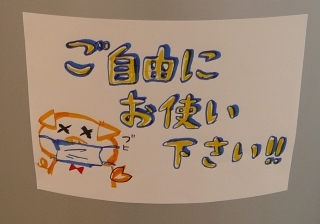 ご自由に
お使い
下さい!!